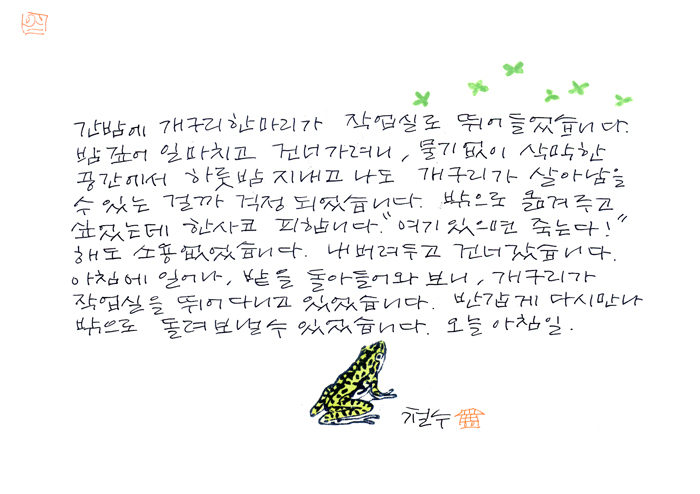 간밤에 개구리한마리가 작업실로 뛰어들었습니다.
밤깊어 일마치고 건너가려니, 물기없이 삭막한
공간에서 하룻밤 지내고나도 개구리가 살아남을
수있는 걸까 걱정 되었습니다. 밖으로 옮겨주고
싶었는데 한사코 피합니다. "여기있으면 죽는다!"
해도 소용없었습니다. 내버려두고 건너갔습니다.
아침에 일어나, 밭을 돌아들어와 보니, 개구리가
작업실을 뛰어다니고 있었습니다. 반갑게 다시만나
밖으로 돌려보낼수 있었습니다. 오늘 아침일.
철수